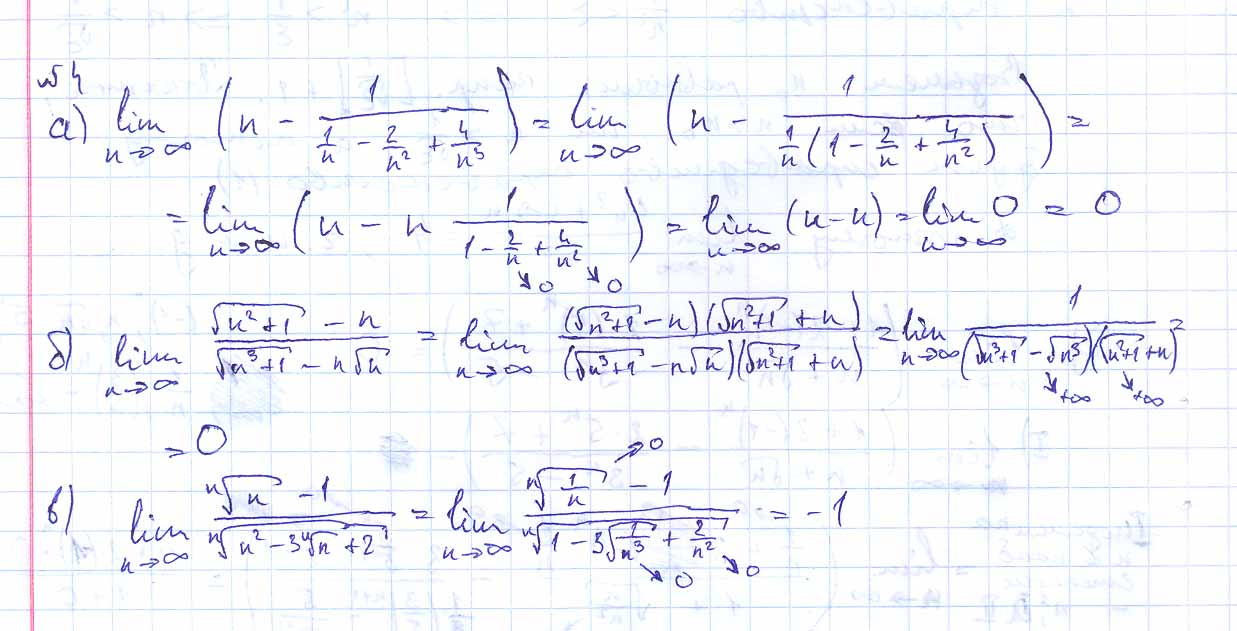 №4
а) lim n→∞ (n - 1/(1/n - 2/n² + 4/n³)) = lim n→∞ (n - 1/(1/n (1 - 2/n + 4/n²))) =
= lim n→∞ (n - n 1/(1 - 2/n + 4/n²)) = lim n→∞ (n-n) = lim n→∞ 0 = 0
↘0 ↘0
б) lim n→∞ (√(n²+1) - n)/(√(n³+1) - n√n) = lim n→∞ ((√(n²+1) - n)(√(n²+1) + n))/((√(n³+1) - n√n)(√(n²+1) + n)) = lim n→∞ 1/((√(n³+1) - √(n³))(√(n²+1) + n)) =
↘+∞ ↘+∞
= 0
↗0
в) lim n→∞ (ⁿ√n - 1)/(ⁿ√(n² - 3ⁿ√n + 2)) = lim n→∞ (ⁿ√(1/n) - 1)/(ⁿ√(1 - 3√(1/n³) + 2/n²)) = -1
↘0 ↘0